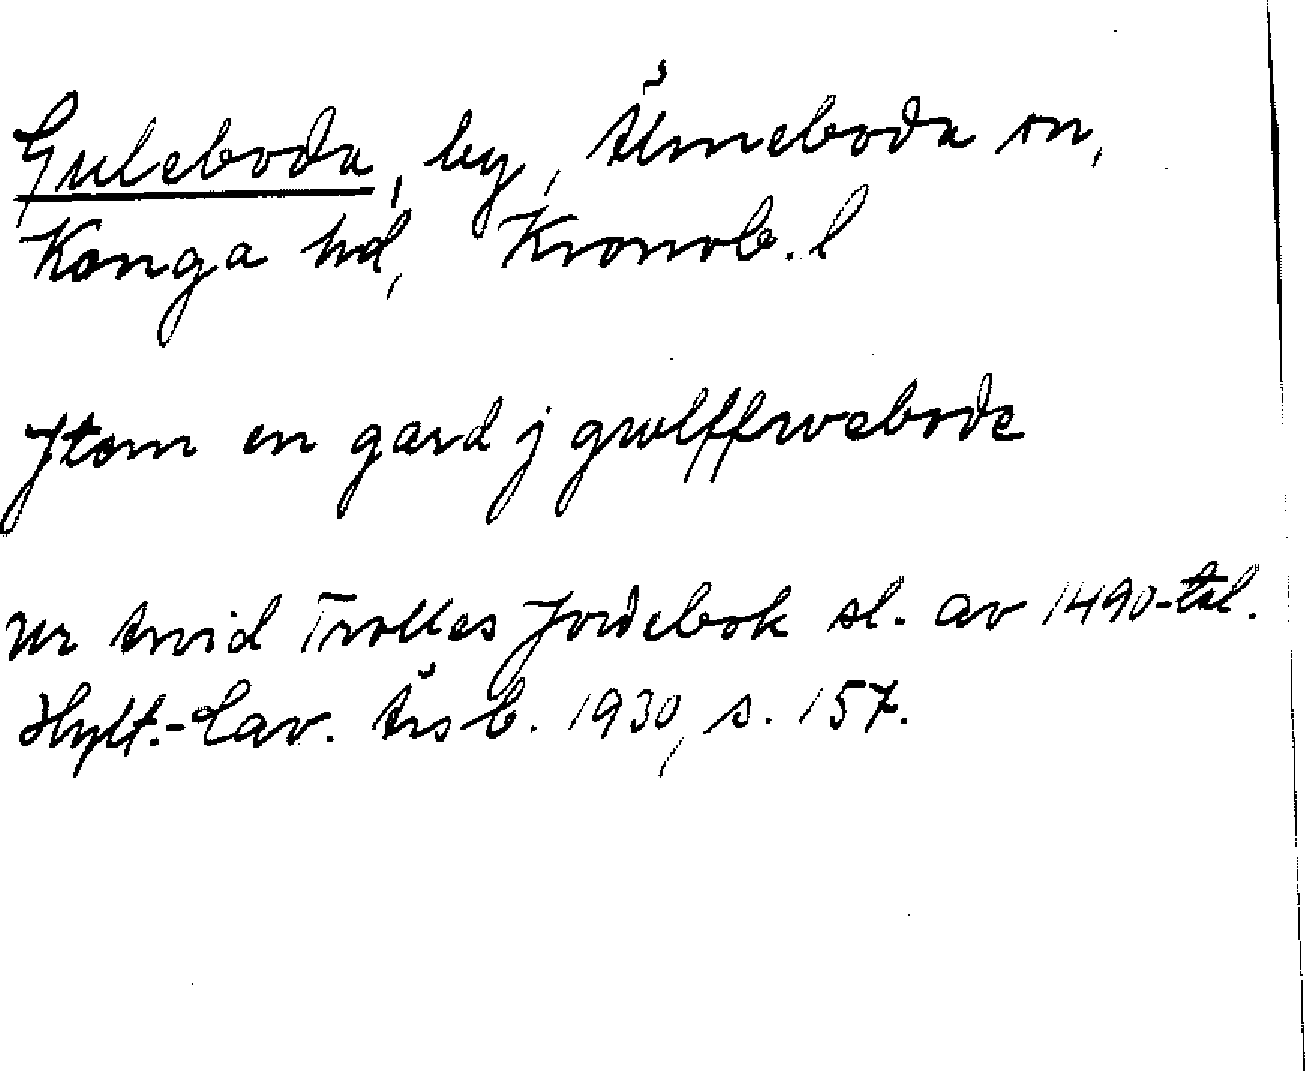 Guleboda, by, Älmeboda sn,
Konga hd, Kronob. l
Jtem en gard j gwlffwebode
Ur Arvid Trolles Jordebok sl. av 1490-tal.
Hylt.-Cav. Årsb. 1930, s. 157.